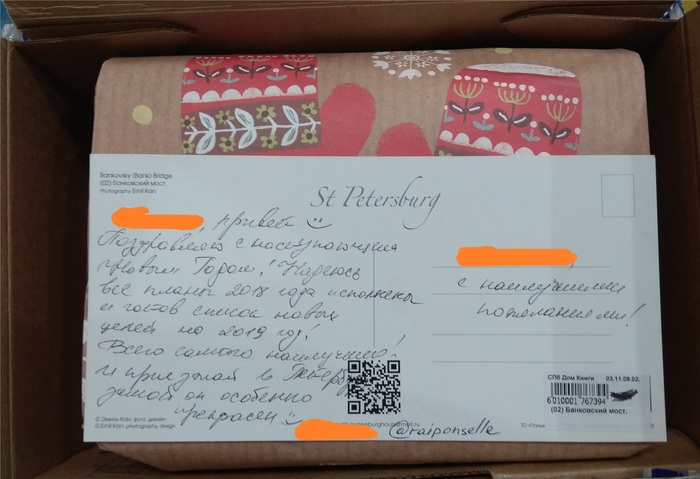 Bankovsky (Bank) Bridge
(02) Банковский мост
Photography Emil Kan
St Petersburg
привет
Поздравляю с наступающим
Новым Годом! Надеюсь
все планы 2018 года исполнены
и готов список новых
целей на 2019 год!
Всего самого наилучшего!
И приезжай в Питер
зимой он особенно
прекрасен
с наилучшими
пожеланиями!
СПб Дом Книги 03.11.08.02.
6010001 767394
(02) Банковский мост.
© Эмиль Кан: фото, дизайн
© Emil Kan: photography, design
@raiponsella